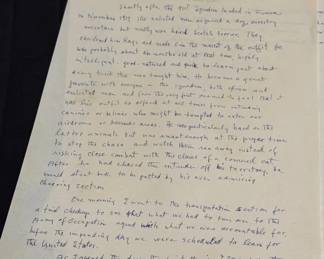 Shortly after the 9th Squadron landed in
in November 1917 the enlisted men acquired a dog, ancestry
uncertain but mostly wire haired Scotch terrier. They
christened him Rags and made him the mascot of the outfit. He
was probably about six months old at that time, highly
intelligent, good-natured and quick to learn just about
any trick the men taught him. He became a great
favorite with everyone in the squadron, both officers and
enlisted men and from the very first seemed to feel that it
was his outfit to defend at all times from intruding
canines or felines who might be tempted to enter our
airdrome or barracks areas. He was particularly hard on the
latter animals but was smart enough at the proper time
to stop the chase and watch them run away instead of
risking close combat with the claws of a cornered cat.
After he had chased the intruder off his territory, he
would strut back to be petted by his ever admiring
cheering section.
One morning I went to the transportation section for
a final checkup to see that what we had to turn over to the
Army of Occupation agreed with what we were accountable for,
before the impending day we were scheduled to leave for
the United States.